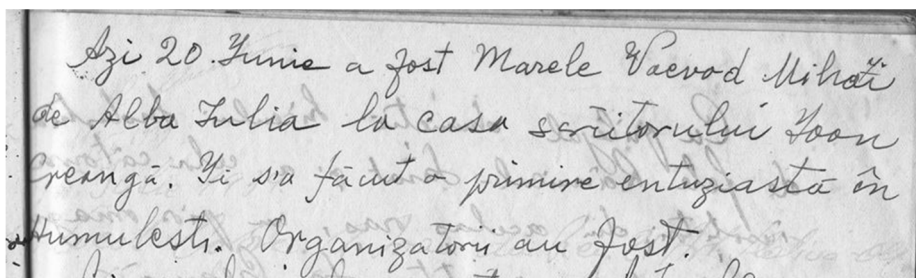 Azi 20 Iunie a fost Marele Voevod Mihai
de Alba Iulia la casa scriitorului Ioan
Creangă. I s'a făcut o primire entuziastă în
Humulești. Organizatorii au fost.